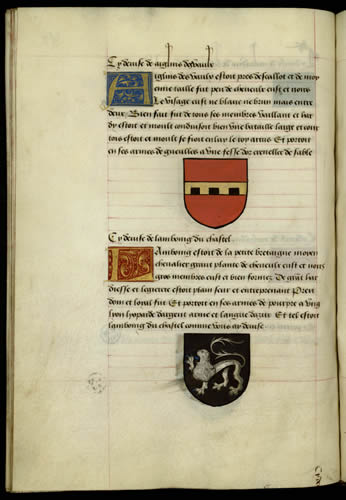 Cy devise de aiglins des vaulx
Aiglins des vaulx estoit pres de scallot et de moy
enne taille fut peu de cheveulx eust et noirs
Le visage eust ne blanc ne brun mais entre
deux. Bien fait fut de tous ses membres vaillant et har
dy estoit et moult conduisoit bien une bataille large et cour
tois estoit et moult se fioit en luy le roy artus. Et portoit
en ses armes de gueulles a une fesse d'or crenellee de sable
Cy devise de lambourg du chastel
Lambourg estoit de la petite bretaigne moyen
chevalier gaint plante de cheveulx eust et noirs
gros membres eust et bien formez. De grãt har
diesse et legierete estoit plain seur et entreprenant Preu
dom et loyal fut Et portoit en ses armes de pourpre a ung
lyon lyoparde d'argent arme et langue d'azur Et tel estoit
lambourg du chastel comme vous ay devise